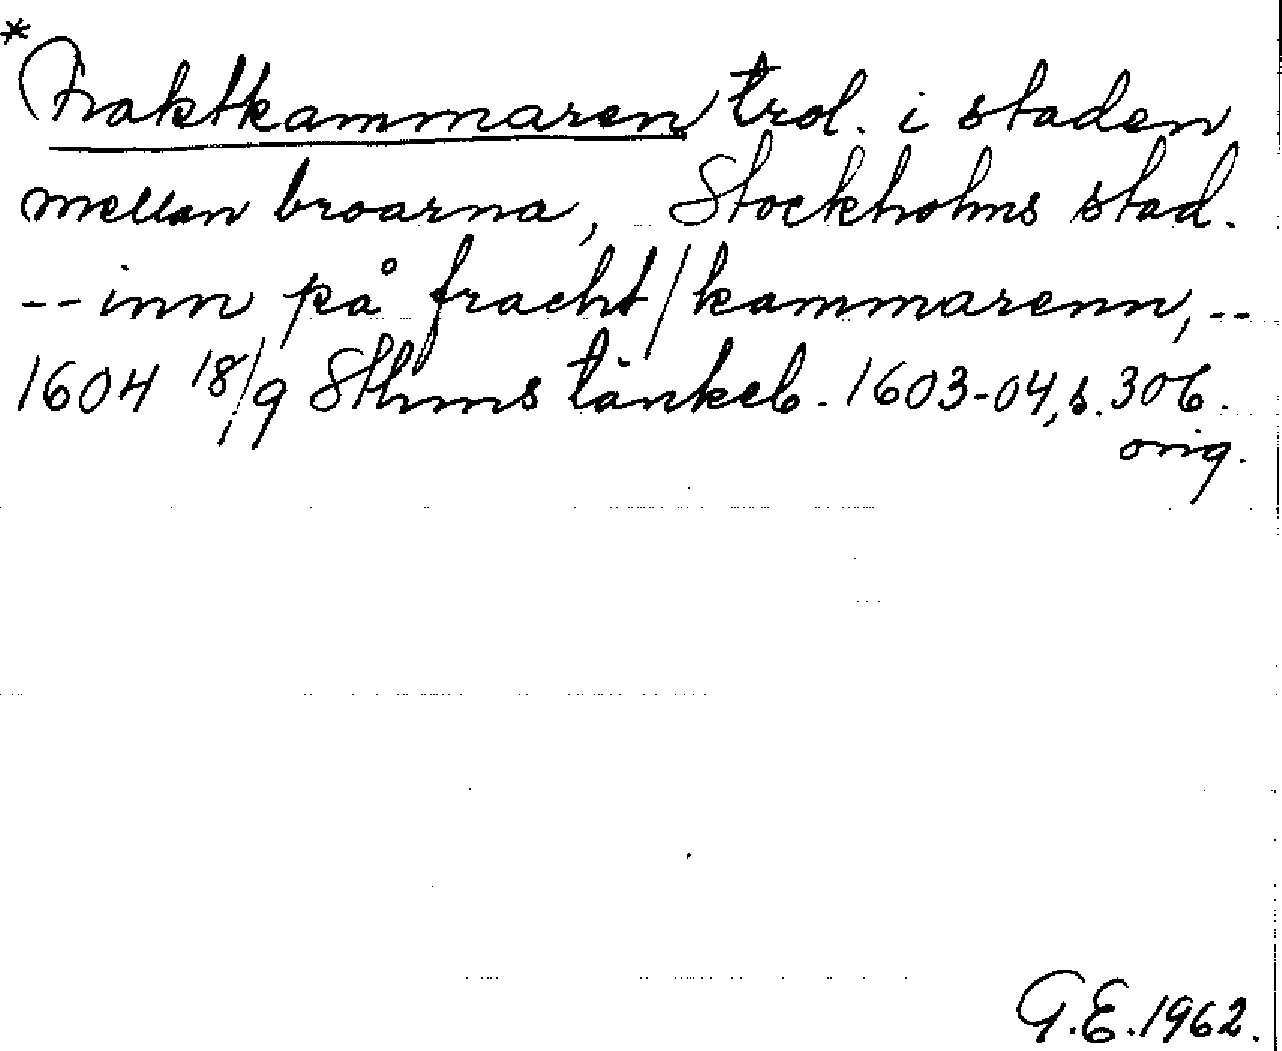 * Fraktkammaren trol. i staden
mellan broarna, Stockholms stad.
-- inn på fracht/kammarenn, --
1604 18/9 Sthms tänkeb. 1603-04, s. 306.
orig.
G.E. 1962.